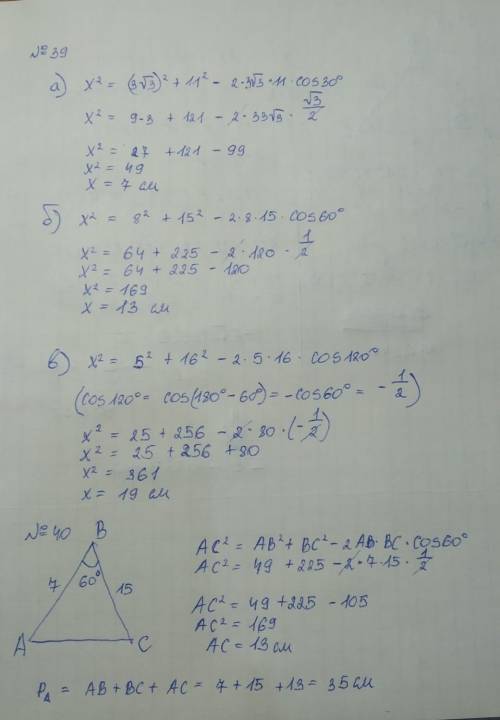 №39
а) x² = (3√3)² + 11² - 2·3√3·11·cos30°
x² = 9·3 + 121 - 2·33√3·√3/2
x² = 27 + 121 - 99
x² = 49
x = 7 см
б) x² = 8² + 15² - 2·8·15·cos60°
x² = 64 + 225 - 2·120·1/2
x² = 64 + 225 - 120
x² = 169
x = 13 см
в) x² = 5² + 16² - 2·5·16·cos120°
(cos120° = cos(180°-60°) = -cos60° = -1/2)
x² = 25 + 256 - 2·80·(-1/2)
x² = 25 + 256 + 80
x² = 361
x = 19 см
№40
B
7
60°
15
A
C
AC² = AB² + BC² - 2AB·BC·cos60°
AC² = 49 + 225 - 2·7·15·1/2
AC² = 49 + 225 - 105
AC² = 169
AC = 13 см
P∆ = AB + BC + AC = 7 + 15 + 13 = 35 см